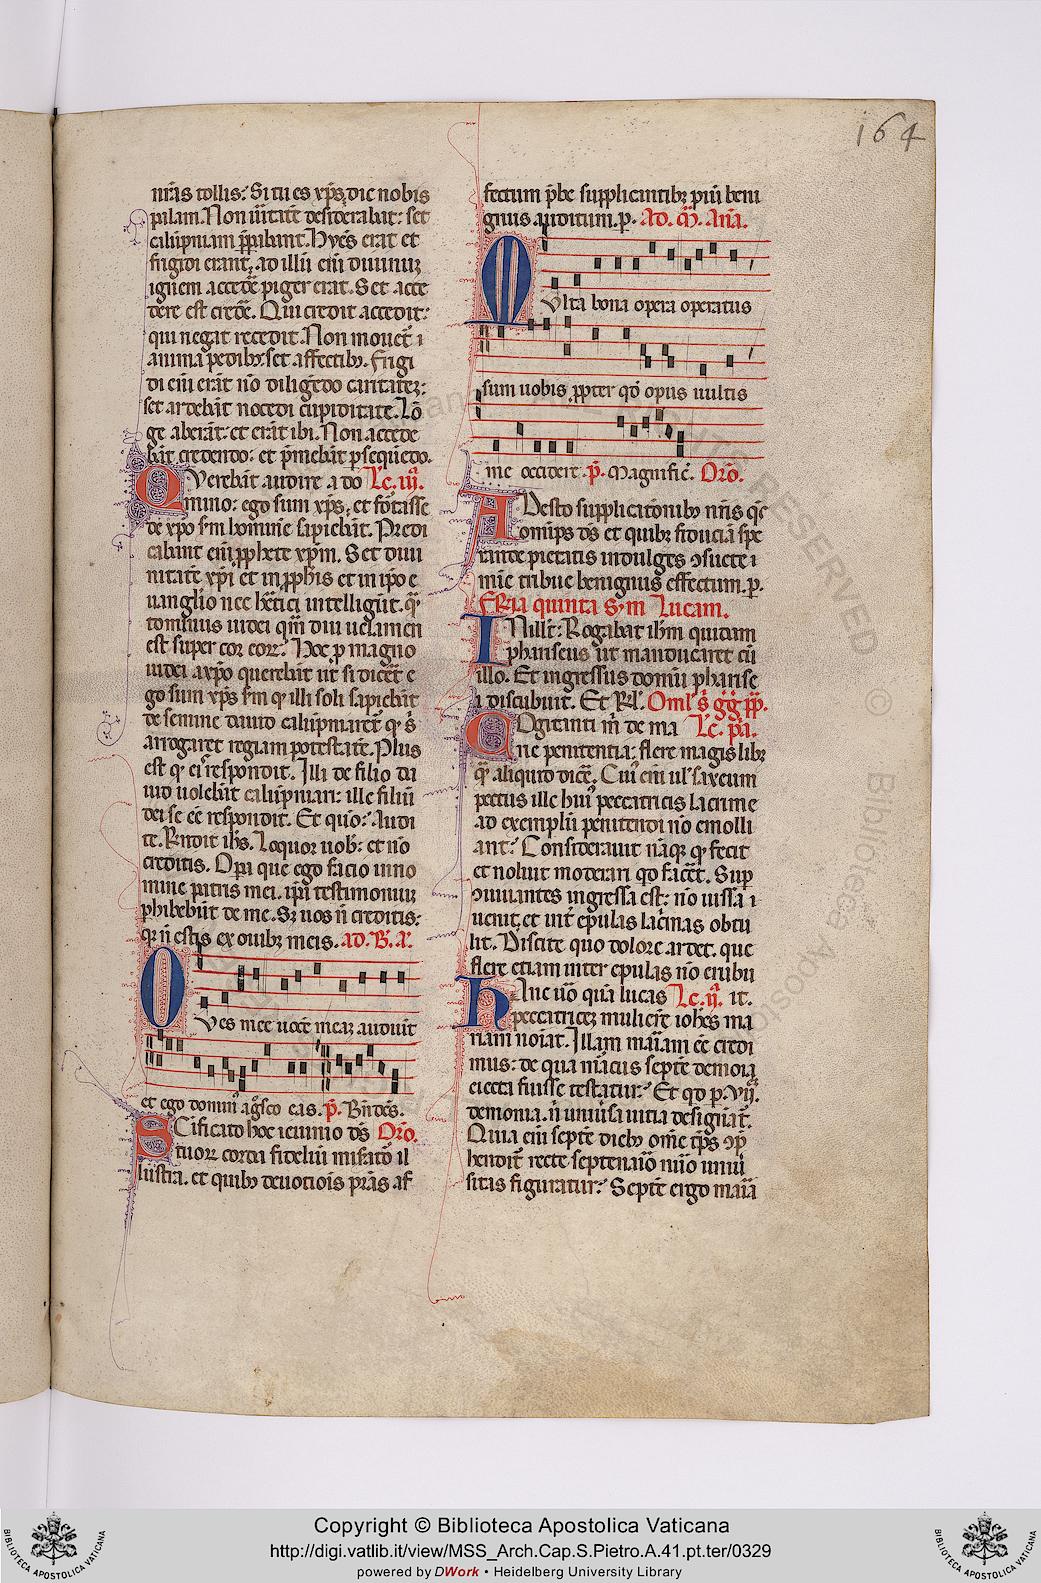 164
nr̄as tollis. Si tu es xp̄s dic nobis
palam. Non ūitatē desiderabāt: set
calūpniam p̄parabant. Hyēs erat et
frigidi erant. ad illū eī diuinuȝ
ignem accedē piger erāt. Set acce
dere est credē. Qui credit accedit:
qui negat recedit. Non mouet᷑ i
anima pedibȝ: set affectibȝ. Frigi
di eī erāt nō diligēdo caritateȝ:
set ardebāt nocēdi cupiditate. Lō
ge aberāt: et erāt ibi. Non accede
bāt credendo: et p̄mebāt p̄sequēdo.
Querebāt audire a do Lc̄. iii.
mino: ego sum xp̄s, et fortasse
de xp̄o scd̄m hominē sapiebāt. Predi
cabant eī p̄phete xp̄m. Set diui
nitatē xp̄i et in p̄phīs et in ip̄o e
uanglio nec hētici intelligūt. q̄
tominus iudei q̄m diu uelamen
est super cor eoꝝ. Hoc p magno
iudei a xp̄o querebāt ut si dicēt e
go sum xp̄s scd̄m qd illi soli sapiebāt
de semine dauid calūpniaret᷑ qd s̄
arrogaret regiam potestatē. Plus
est qd eī respondit. Illi de filio da
uid uolebāt calūpniari: ille filiū
dei se eē respondit. Et quō: Audi
te. Rn̄dit ihs̄. Loquor uob̄: et nō
creditis. Opa que ego facio in no
mine patris mei. ip̄a testimoniuȝ
phibebūt de me. Sȝ uos n̄ creditis:
qꝛ n̄ estis ex ouibȝ meis. ad. B. a᷑.
Oues mee uocē meaȝ audiūt
et ego domin᷑ agn̄sco eas. p̄. Bn̄dc̄s.
Scificato hoc ieiunio dn̄s Orō.
tuoꝝ corda fideliū miserātor il
lustra. et quibȝ deuotiōis p̄stas af
fectum p̄be supplicantibȝ piū beni
gnus auditum. p. Ad. m̄. An̄a.
Multa bona opera operatus
sum uobis p̄pter qd̄ opus uultis
me occidere p̄. Magnific᷑. Orō.
Adesto supplicatōnibȝ nr̄is q̄s
omīps ds̄ et quibȝ fiduciā spe
rande pietatis indulges ɔsuete i
mīe tribue benignus effectum. p.
Feria quinta scd̄m Lucam.
In illt̄: Rogabat ihm̄ quidam
phariseus ut manducaret cū
illo. Et ingressus domū pharise
i discubuit. Et Rl᷑. Oml᷑ s̄ gḡ pp̄.
Cogitanti m̄ de ma Lc̄. pa.
rie penitentia: flere magis libȝ
q̄ aliquid dicē. Cui᷑ eī ul᷑ saxeum
pectus ille hui᷑ peccatricis lacrime
ad exemplū penitendi nō emolli
ant: Considerauit nāqȝ qd fecit
et noluit moderari qd facēt. Sup
ɔuiuantes ingressa est: nō iussa i
uenit. et int᷑ epulas lac᷑mas obtu
lit. Discite quo dolore ardet. que
flere etiam inter epulas nō erubu
Hanc ūo quā lucas Lc̄. ii. it.
peccatriceȝ mulierē ioh̄es ma
riam noīat. Illam mariam eē credi
mus: de qua marcus septē demoīa
eiecta fuisse testatur: Et qd p. vii.
demonia. n̄ uniūsa uitia designāt᷑.
Quia eī septē diebȝ om̄e tp̄s ɔp̄
hendit᷑ recte septenario nūo uniū
sitas figuratur: Septē ergo maria
Copyright © Biblioteca Apostolica Vaticana
http://digi.vatlib.it/view/MSS_Arch.Cap.S.Pietro.A.41.pt.ter/0329
powered by DWork • Heidelberg University Library